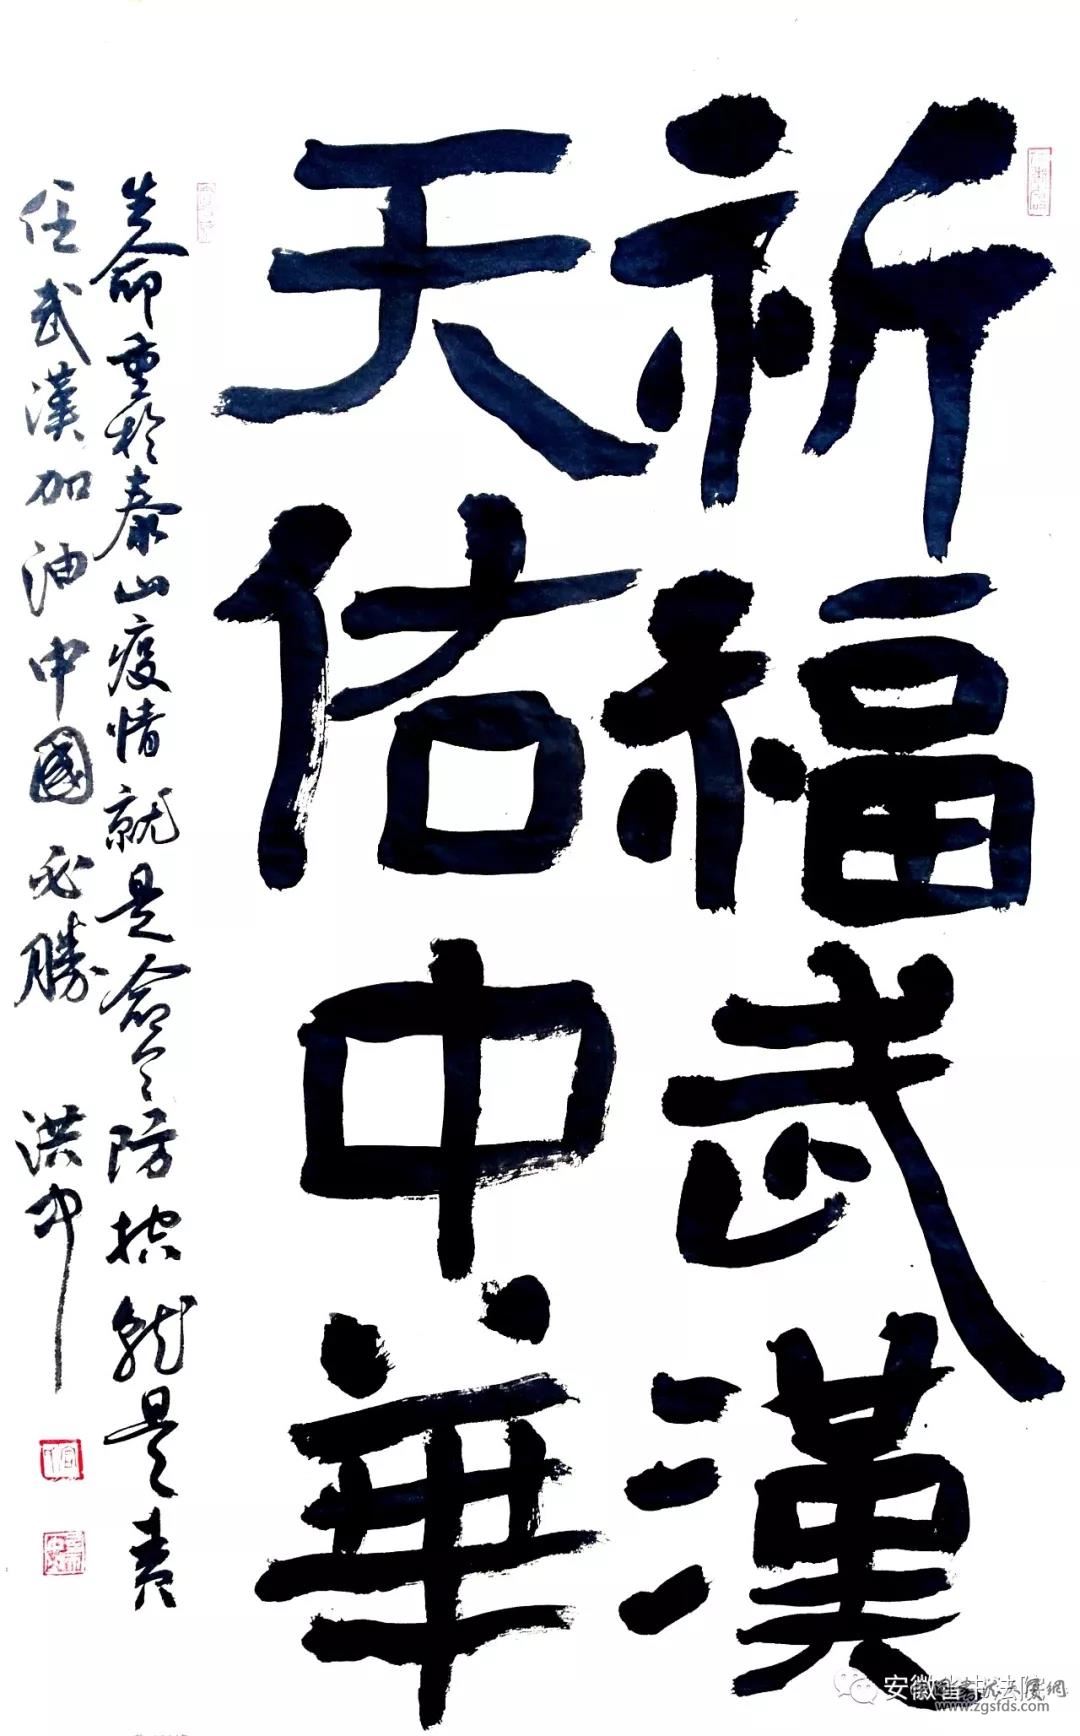 祈福武漢
天佑中華
生命重於泰山疫情就是命令防控就是責
任武漢加油中國必勝 洪中
安徽省书法院
www.zgsfds.com